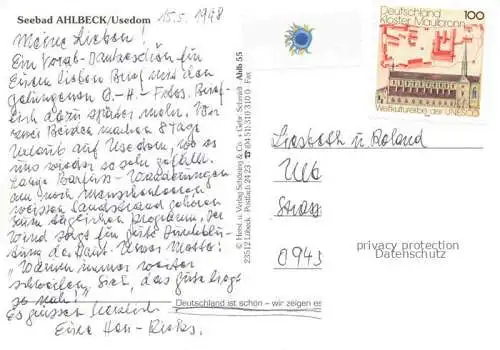 Seebad AHLBECK/Usedom
15.5.1998
Meine Lieben!
Ein Vorab-Dankeschön für
Euren lieben Brief und den
gelungenen Fotos. Brief-
lich dazu später mehr. Wir
zwei Beiden machen 8 Tage
Urlaub auf Usedom, wo es
uns wieder so sehr gefällt.
Lange Barfuss-Wanderungen
am noch menschenleeren
weissen Sandstrand gehören
zum täglichen Programm. Der
Wind sorgt für gute Durchblu-
tung der Haut. Unser Motto:
"Warum immer weiter
schweifen, sieh, das Gute liegt
so nah!"
Es grüssen herzlich
Eure
© Herst. u. Verlag Schöning & Co. + Gebr. Schmidt
23512 Lübeck, Postfach 24 23 ☎ (04 51) 319 310 0 · Fax
Ahlb 55
Deutschland ist schön – wir zeigen es
Deutschland
Kloster Maulbronn
100
Weltkulturerbe der UNESCO
Liesbeth u. Roland
0945
privacy protection
Datenschutz